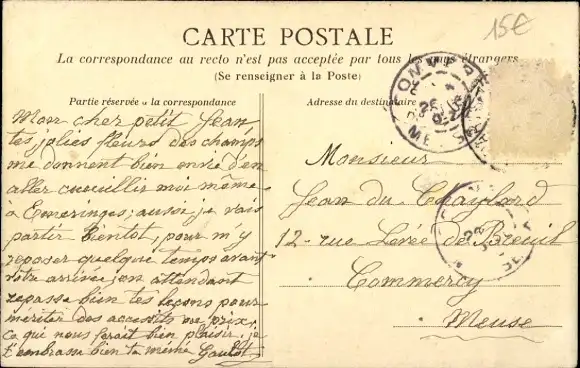 15€
CARTE POSTALE
La correspondance au recto n'est pas acceptée par tous les pays étrangers
(Se renseigner à la Poste)
Partie réservée à la correspondance
Adresse du destinataire
Mon cher petit Jean
tes jolies fleurs des champs
me donnent bien envie d'en
aller cueuillir moi même
à Emeringes; aussi je vais
partir bientot, pour m'y
reposer quelque temps avant
votre arrivée, en attendant
repasse bien tes leçons pour
mériter des accessits ou prix,
ce qui nous ferait bien plaisir. je
t'embrasse bien ta mémé
Monsieur
Jean du Chaylard
12 - rue Levée de Breuil
Commercy
Meuse